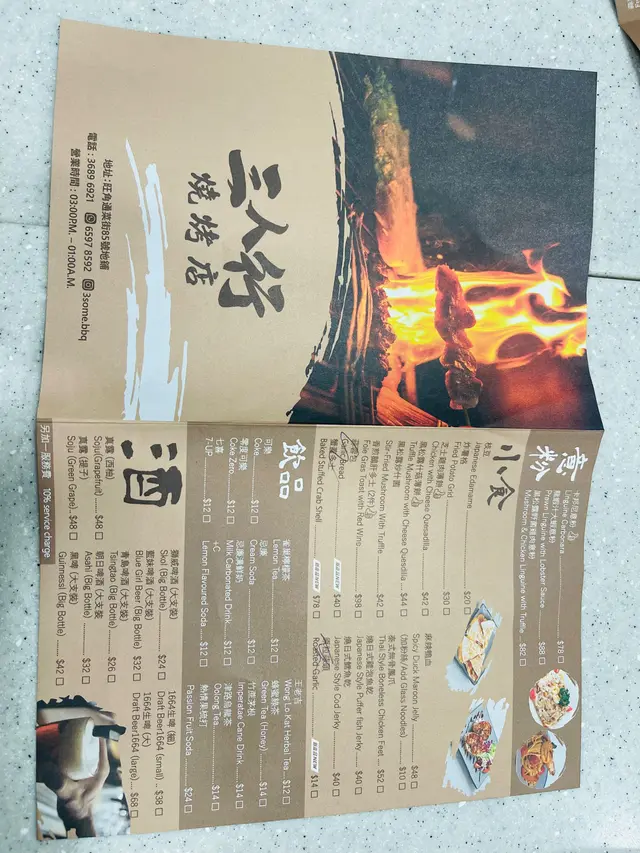 三人行
燒烤店
地址:旺角通菜街85號地鋪
電話 : 3689 6921 6597 8592 3some.bbq
營業時間 : 03:00P.M. – 01:00A.M.
意粉
卡邦尼意粉
Linguine Carbonara $78
龍蝦汁大蝦意粉
Prawn Linguine with Lobster Sauce $88
黑松露野菌雞肉意粉
Mushroom & Chicken Linguine with Truffle $88
小食
枝豆
Japanese Edamame $20
炸薯格
Fried Potato Grid $30
芝士雞肉薄餅
Chicken with Cheese Quesadilla $42
黑松露什菇薄餅
Truffle Mushroom with Cheese Quesdilla $44
黑松露炒什菌
Stir-fried Mushroom With Truffle $42
香煎鵝肝多士 (2件)
Foie Gras Toast with Red Wine $98
蒜蓉包
Garlic Bread $40
蟹蓋
Baked Stuffed Crab Shell $78
麻辣鴨血
Spicy Duck Maroon Jelly $48
(加粉絲/Add Glass Noodles) $10
泰式無骨鳳爪
Thai Style Boneless Chicken Feet $52
燒日式雞泡魚乾
Japanese Style Puffer fish Jerky $40
燒日式鱈魚乾
Japanese Style Cod Jerky $40
Roasted Garlic $14
飲品
可樂
Coke $12
零度可樂
Coke Zero $12
七喜
7-UP $12
雀巢檸檬茶
Lemon Tea $12
忌廉
Cream Soda $12
忌廉溝鮮奶
Milk Carbonated Drink $12
+C
Lemon Flavoured Soda $12
王老吉
Wong Lo Kat Herbal Tea $12
蜂蜜綠茶
Green Tea (Honey) $14
竹蔗茅根
Imperatae Cane Drink $14
津路烏龍茶
Oolong Tea $14
熱情果梳打
Passion Fruit Soda $24
酒
真露 (西柚)
Soju(Grapefruit) $48
真露 (提子)
Soju (Green Grape) $48
獅威啤酒 (大支裝)
Skol (Big Bottle) $24
藍妹啤酒 (大支裝)
Blue Girl Beer (Big Bottle) $32
青島啤酒 (大支裝)
Tsingtao (Big Bottle) $26
朝日啤酒 (大支裝)
Asahi (Big Bottle) $32
黑啤 (大支裝)
Guinnessi (Big Bottle) $42
1664生啤 (細)
Draft Beer1664 (small) $38
1664生啤 (大)
Draft Beer1664 (large) $68
另加一服務費 10% service charge